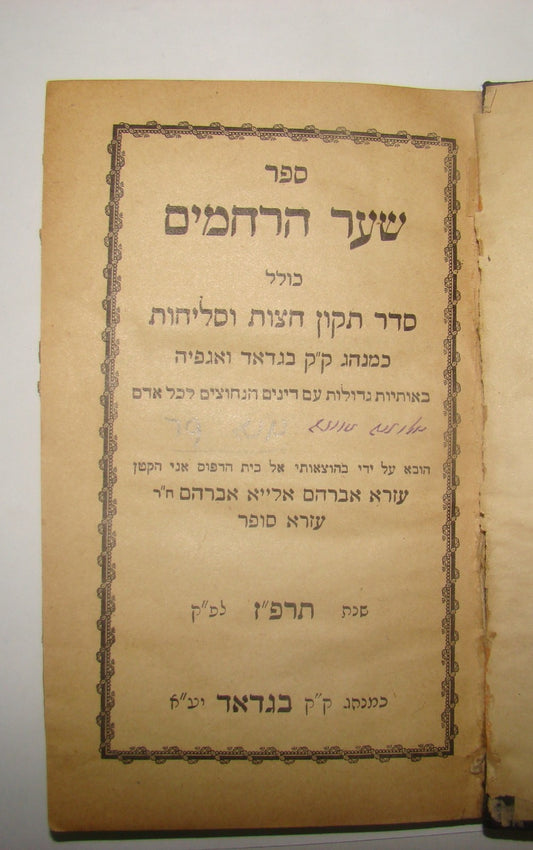 ספר
שער הרחמים
כולל
סדר תקון חצות וסליחות
כמנהג ק״ק בגדאד ואגפיה
באותיות גדולות עם דינים הנחוצים לכל אדם
הובא על ידי בהוצאותי אל בית הדפוס אני הקטן
עזרא אברהם אלייא אברהם ח״ר
עזרא סופר
שנת תרפ״ז לפ״ק
כמנהג ק״ק בגדאד יע״א